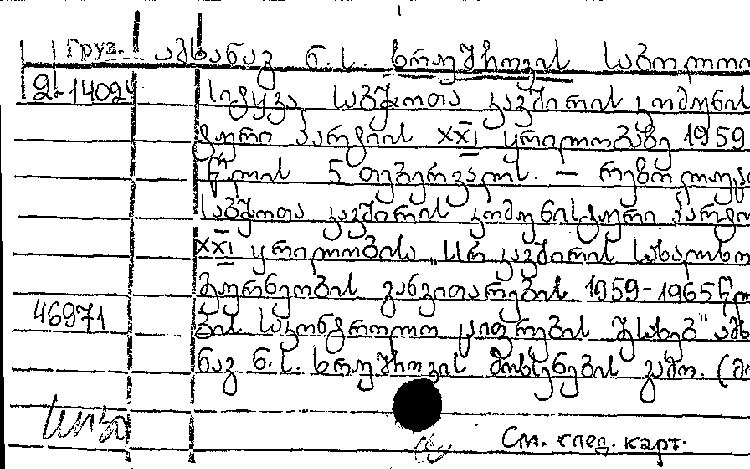 Груз. ამხანაგ ნ. ს. ხრუშჩოვის საბოლოო
2-14024 სიტყვა საბჭოთა კავშირის კომუნის
ტური პარტიის XXI ყრილობაზე 1959
წლის 5 თებერვალს. — რეზოლუცი
საბჭოთა კავშირის კომუნისტური პარტი
XXI ყრილობისა „სსრ კავშირის სახალხო
მეურნეობის განვითარების 1959-1965 წლე
46971 ბის საკონტროლო ციფრების შესახებ" ამხა
ნაგ ნ. ს. ხრუშჩოვის მოხსენების გამო. (მი
См. след. карт.